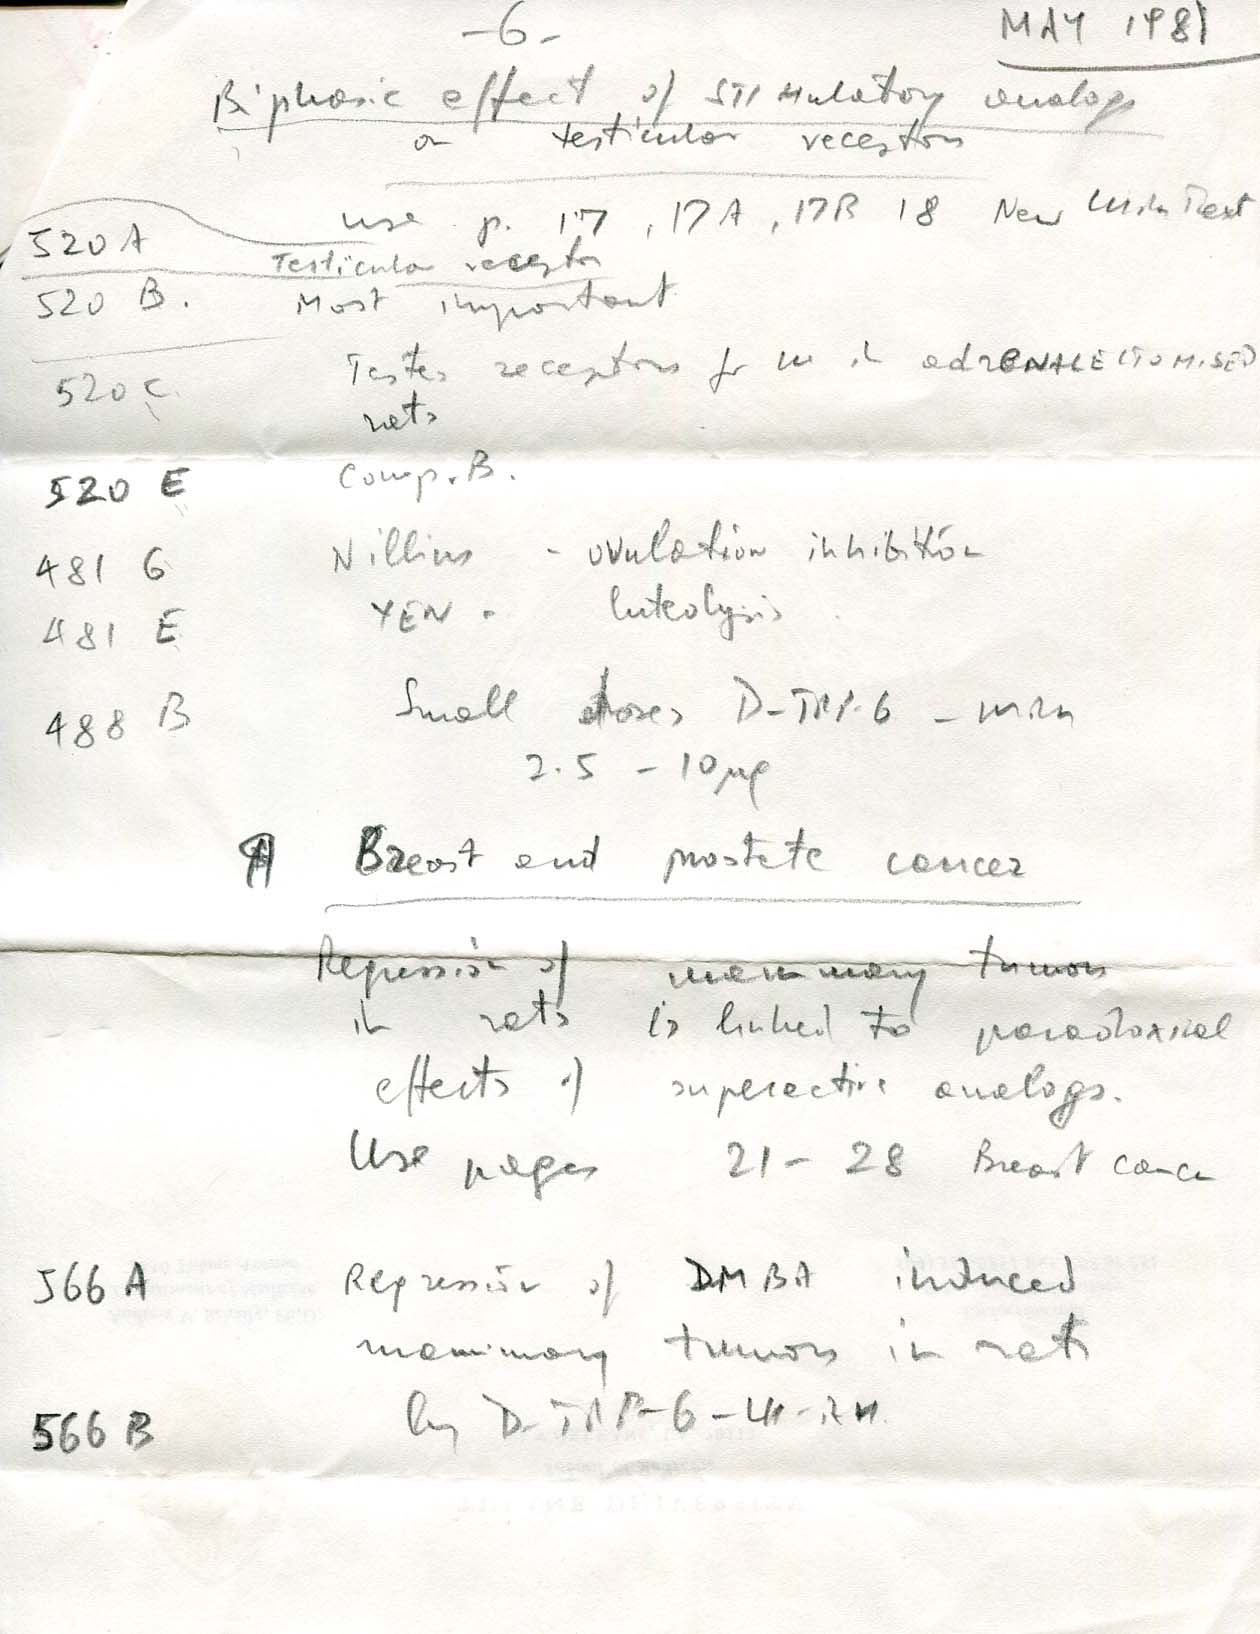 -6-
MAY 1981
Biphasic effect of STIMulatory analogs
on testicular receptors
use p. 17, 17A, 17B 18 New LH-RH Text
520 A
Testicular receptor
520 B. Most important
520 C. Testes receptors for LH in adRENALECTOMISED
rats
520 E Comp. B.
481 G Nillius - ovulation inhibition
481 E YEN - luteolysis
488 B Small doses D-TRP-6 - LH-RH
2.5 - 10 µg
¶ Breast and prostate cancer
Regression of mammary tumors
in rats is linked to paradoxical
effects of superactive analogs.
Use pages 21 - 28 Breast cancer
566 A Regression of DMBA induced
mammary tumors in rats
566 B by D-TRP-6-LH-RH.